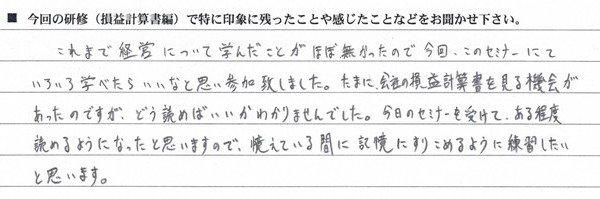 ■ 今回の研修（損益計算書編）で特に印象に残ったことや感じたことなどをお聞かせ下さい。
これまで経営について学んだことがほぼ無かったので今回、このセミナーにて
いろいろ学べたらいいなと思い参加致しました。たまに、会社の損益計算書を見る機会が
あったのですが、どう読めばいいかわかりませんでした。今日のセミナーを受けて、ある程度
読めるようになったと思いますので、憶えている間に記憶にすりこめるように練習したい
と思います。